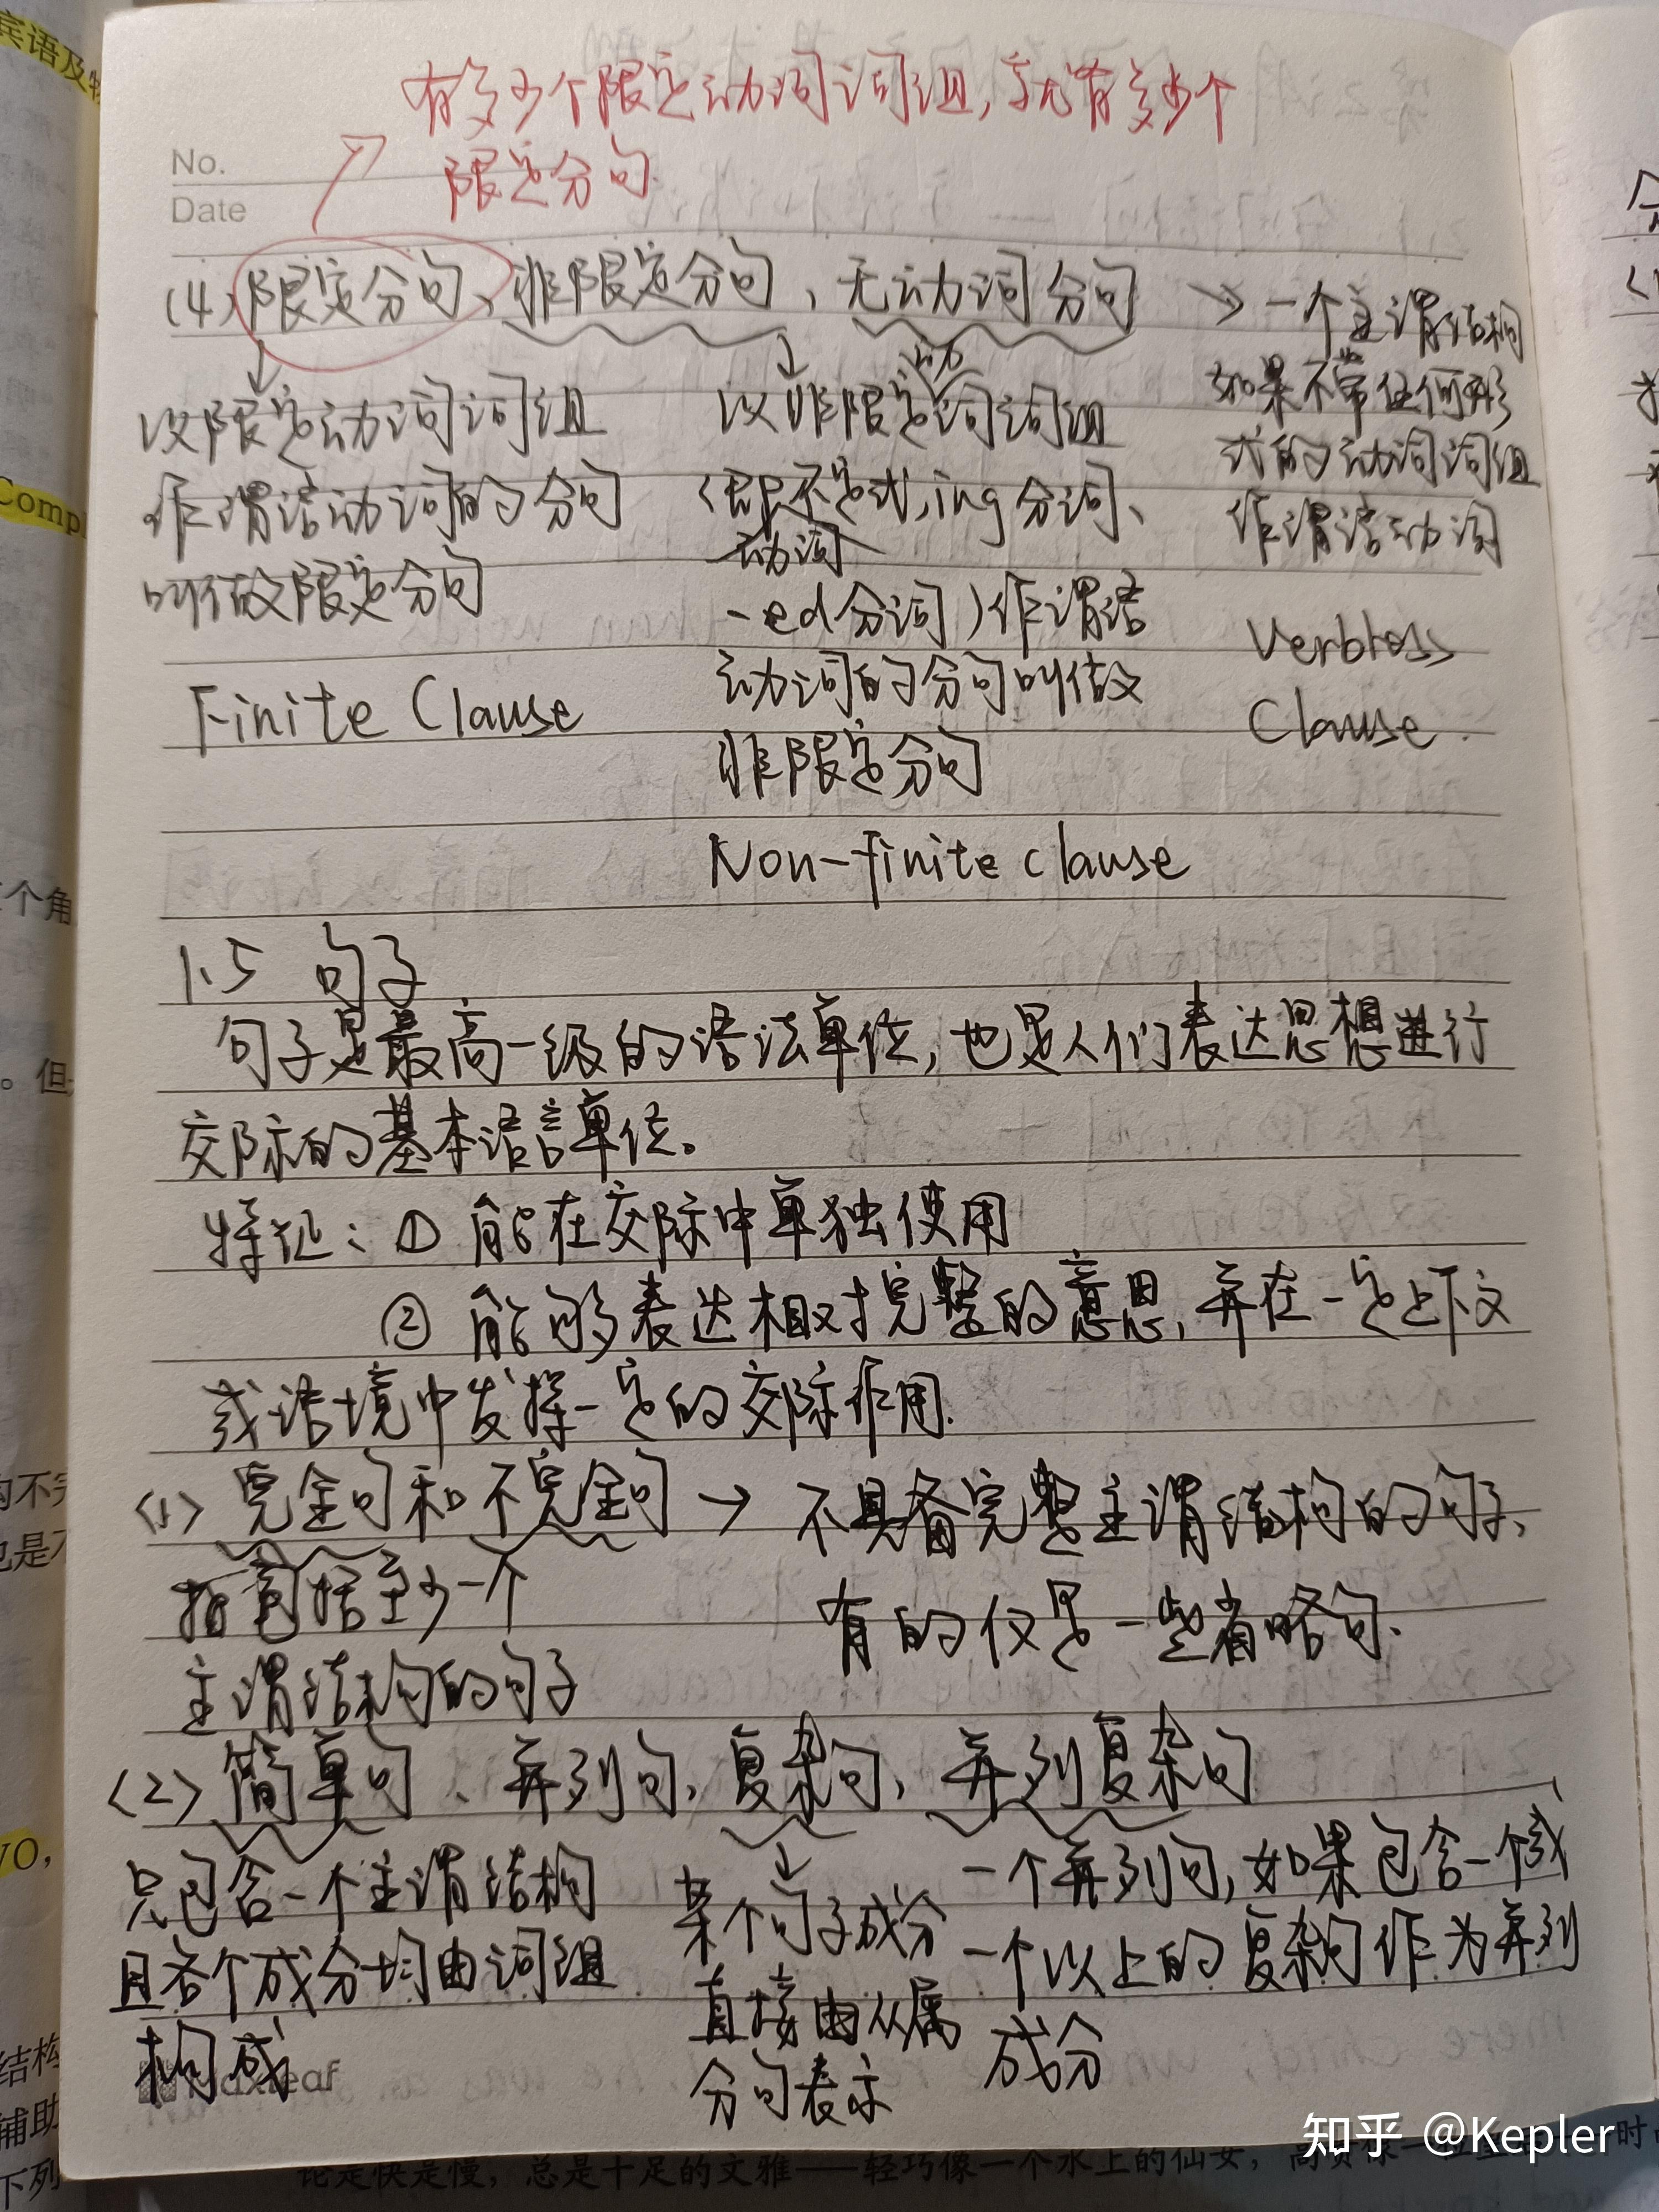 有多少个限定动词词组,就有多少个
限定分句.
No.
Date
(4)限定分句、非限定分句、无动词分句 → 一个主谓结构
如果不带任何形
式的动词词组
作谓语动词
Verbless
Clause.
以限定动词词组
作谓语动词的分句
叫做限定分句
Finite Clause
动
以非限定词词组
(即不定式,ing分词、
动词
-ed分词)作谓语
动词的分句叫做
非限定分句
Non-finite clause
1.5 句子
句子是最高一级的语法单位,也是人们表达思想进行
交际的基本语言单位。
特征:① 能在交际中单独使用
② 能够表达相对完整的意思,并在一定上下文
或语境中发挥一定的交际作用.
(1) 完全句和不完全句 → 不具备完整主谓结构的句子、
有的仅是一些省略句.
指包括至少一个
主谓结构的句子
(2) 简单句、并列句、复杂句、并列复杂句
只包含一个主谓结构
且各个成分均由词组
构成
某个句子成分
直接由从属
分句表示
一个并列句,如果包含一个或
一个以上的复杂句作为并列
成分
宾语及
Comp
个角
。但
句不完
也是不
VO,
结构
辅助
下列
论是快是慢，总是十足的文雅——轻巧像一个水上的仙女，高贵像一位
知乎 @Kepler